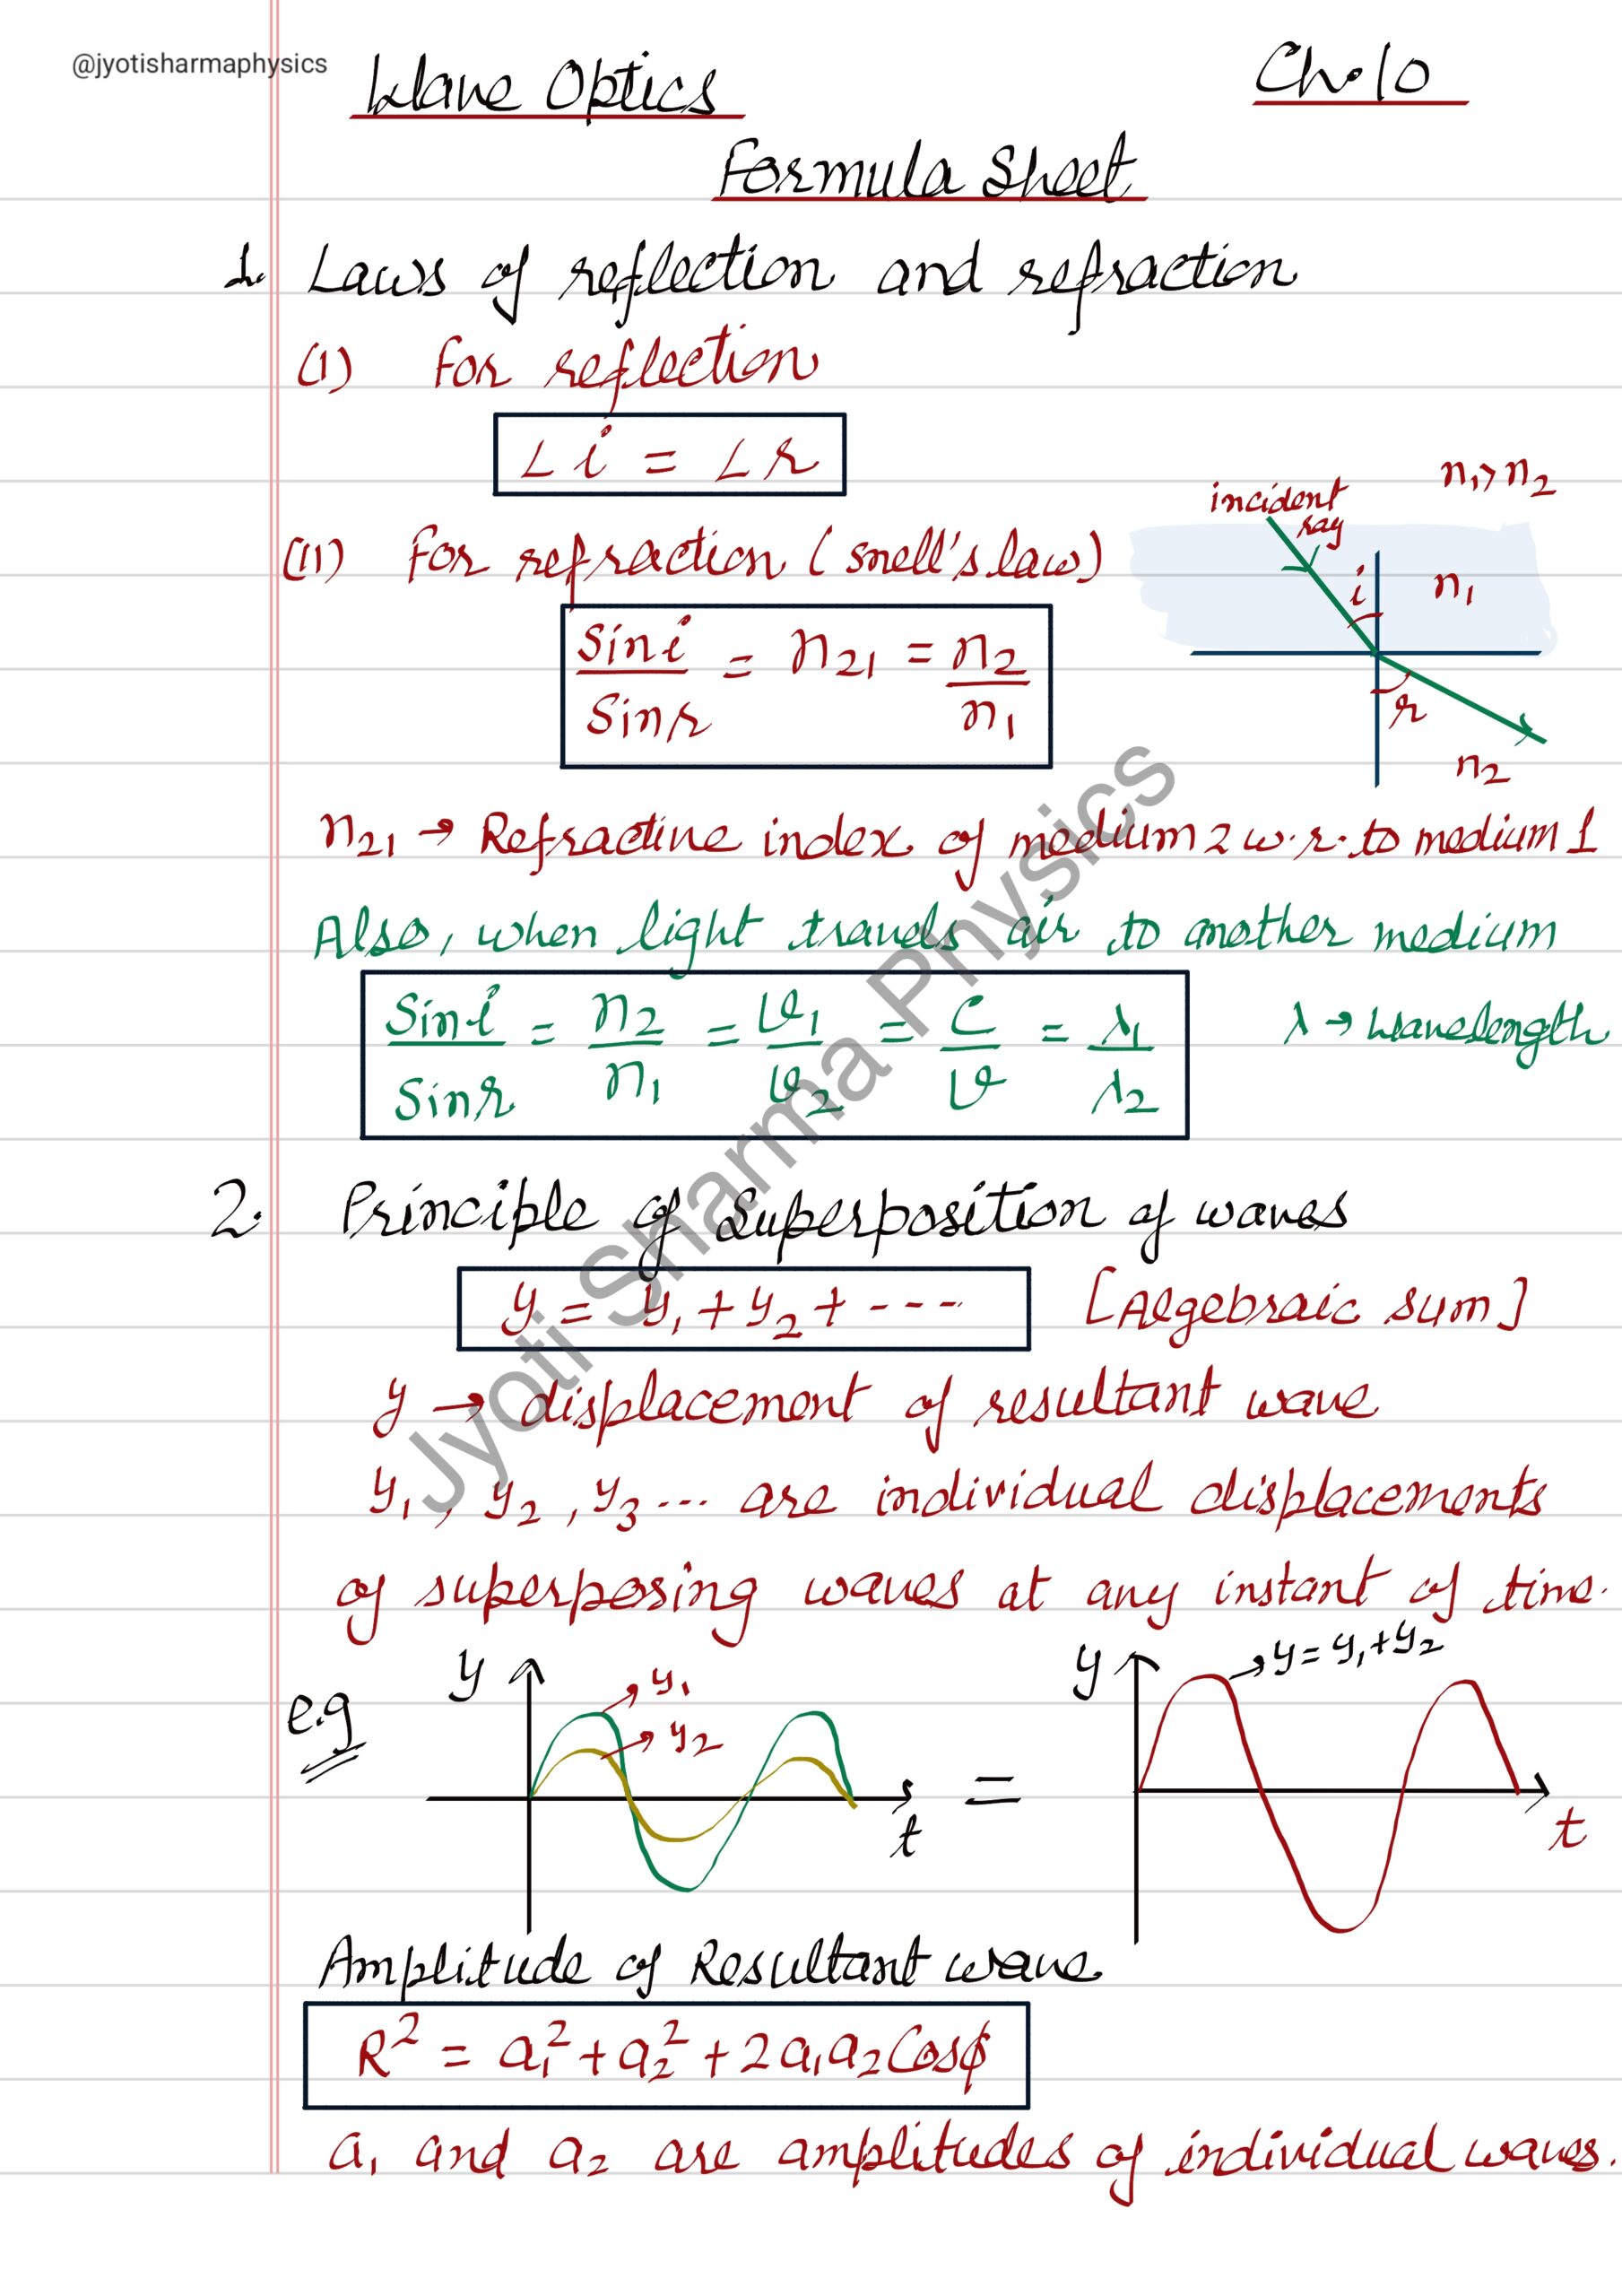 @jyotisharmaphysics
Wave Optics
Ch.10
Formula Sheet
1. Laws of reflection and refraction
(I) For reflection
∠i = ∠r
(II) For refraction (snell's law)
Sin i / Sin r = n₂₁ = n₂ / n₁
n₁>n₂
incident
ray
i
n₁
r
n₂
n₂₁ → Refractive index of medium 2 w.r.to medium 1
Also, when light travels air to another medium
Sin i / Sin r = n₂ / n₁ = v₁ / v₂ = c / v = λ₁ / λ₂
λ → wavelength
2. Principle of Superposition of waves
y = y₁ + y₂ + ---- [Algebraic sum]
y → displacement of resultant wave
y₁, y₂, y₃ ... are individual displacements
of superposing waves at any instant of time.
e.g
y
y₁
y₂
t
=
y
→ y = y₁+y₂
t
Amplitude of Resultant wave
R² = a₁² + a₂² + 2a₁a₂Cosϕ
a₁ and a₂ are amplitudes of individual waves.
Jyoti Sharma Physics